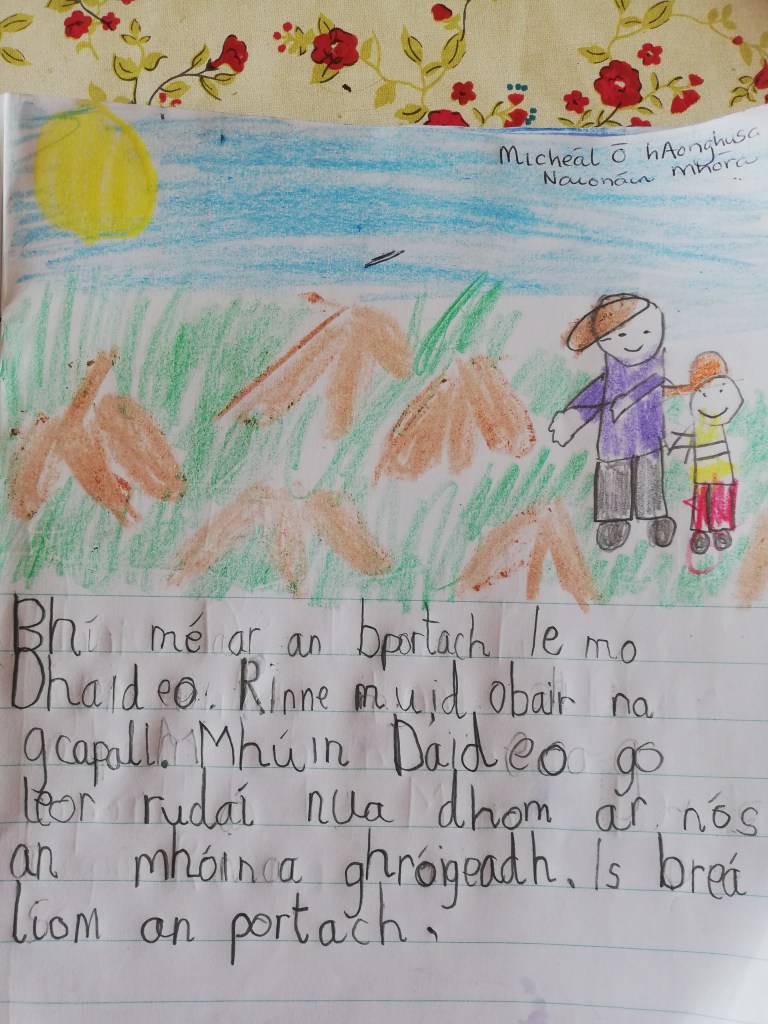 Micheál Ó hAonghusa
Naíonáin mhóra
Bhí mé ar an bportach le mo
Dhaideo. Rinne muid obair na
gcapall. Mhúin Daideo go
leor rudaí nua dhom ar nós
an mhóin a ghróigeadh. Is breá
liom an portach.